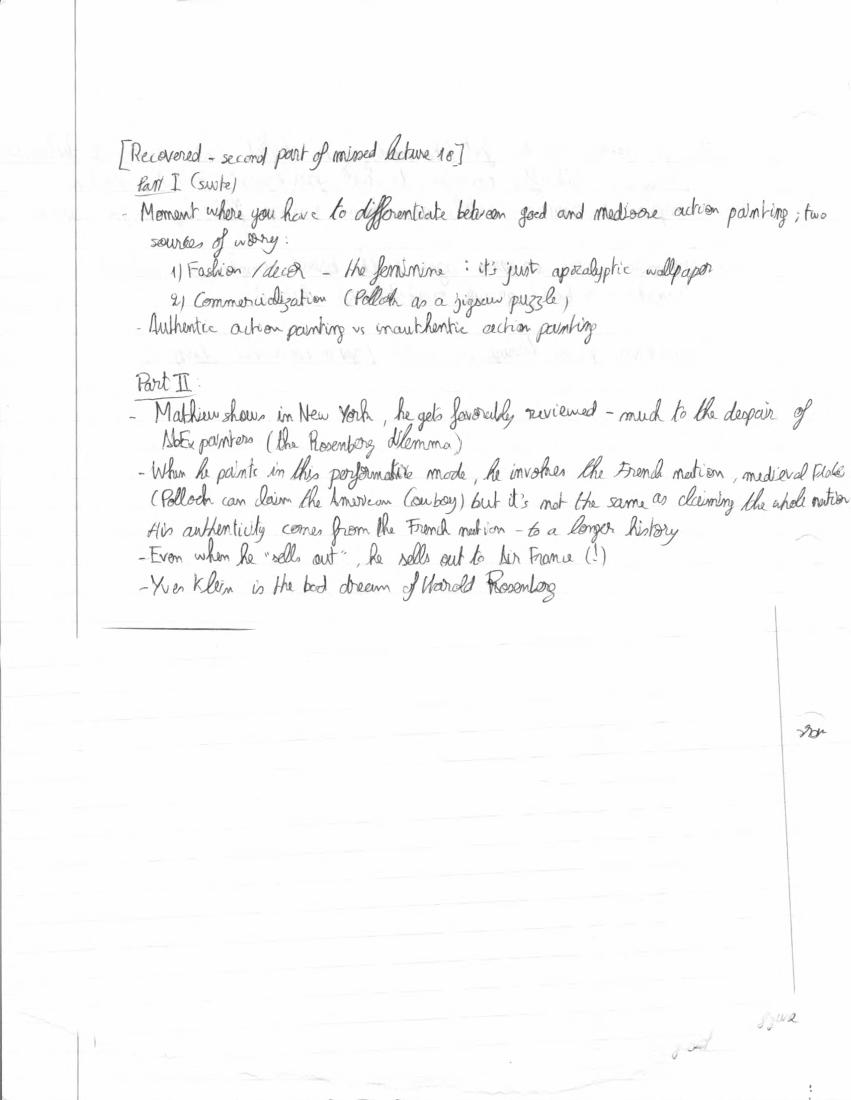 [Recovered - second part of missed lecture 18]
Part I (suite)
- Moment where you have to differentiate between good and mediocre action painting ; two
sources of worry :
1) Fashion / decor - the feminine : it's just apocalyptic wallpaper
2) Commercialization (Pollock as a jigsaw puzzle)
- Authentic action painting vs inauthentic action painting
Part II :
- Mathieu shows in New York, he gets favorably reviewed - much to the despair of
AbEx painters (the Rosenberg dilemma)
- When he paints in this performative mode, he invokes the French nation, medieval
(Pollock can claim the American Cowboy) but it's not the same as claiming the whole nation
His authenticity comes from the French nation - to a longer history
- Even when he "sells out", he sells out to Air France (!)
- Yves Klein is the bad dream of Harold Rosenberg